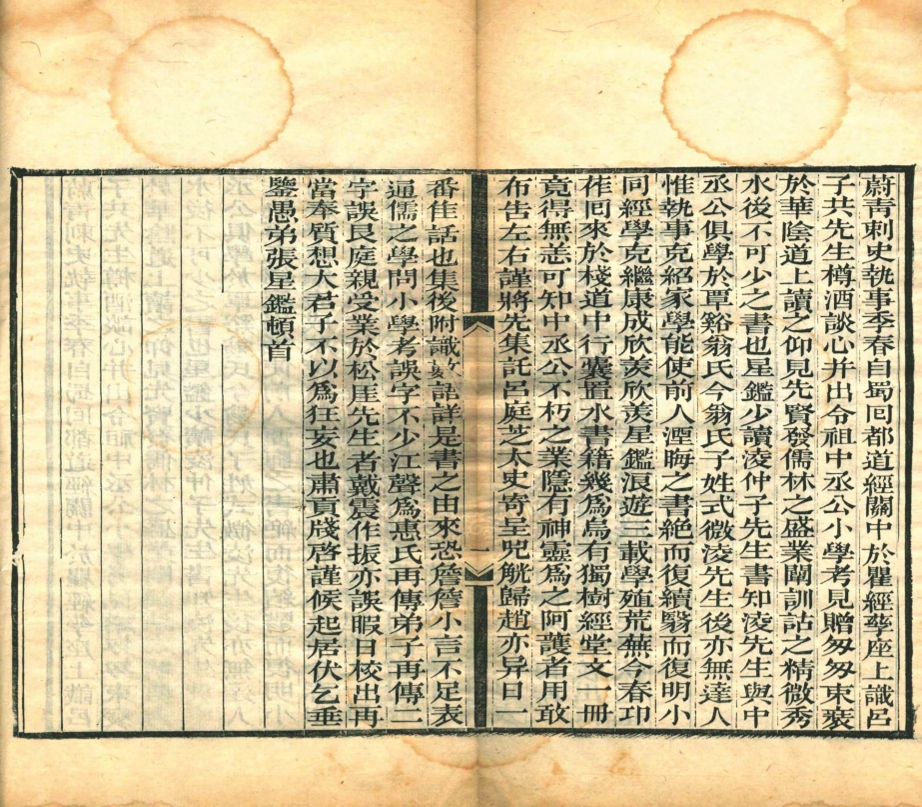 蔚青刺史執事季春自蜀囘都道經關中於瞿經孳座上識呂
子共先生樽酒談心并出令祖中丞公小學考見贈匆匆束裝
於華陰道上讀之仰見先賢發儒林之盛業闡訓詁之精微秀
水後不可少之書也星鑑少讀淩仲子先生書知淩先生與中
丞公俱學於覃谿翁氏今翁氏子姓式微淩先生後亦無達人
惟執事克紹家學能使前人湮晦之書絶而復續翳而復明小
同經學克繼康成欣羨欣羨星鑑浪遊三載學殖荒蕪今春卭
莋囘來於棧道中行囊置水書籍幾爲烏有獨樹經堂文一冊
竟得無恙可知中丞公不朽之業隱有神靈爲之阿護者用敢
布告左右謹將先集託呂庭芝太史寄呈兕觥歸趙亦异日一
番佳話也集後附識數語詳是書之由來恐詹詹小言不足表
通儒之學問小學考誤字不少江聲爲惠氏再傳弟子再傳二
字誤艮庭親受業於松厓先生者戴震作振亦誤暇日校出再
當奉質想大君子不以爲狂妄也肅頁牋啓謹候起居伏乞垂
鑒愚弟張星鑑頓首